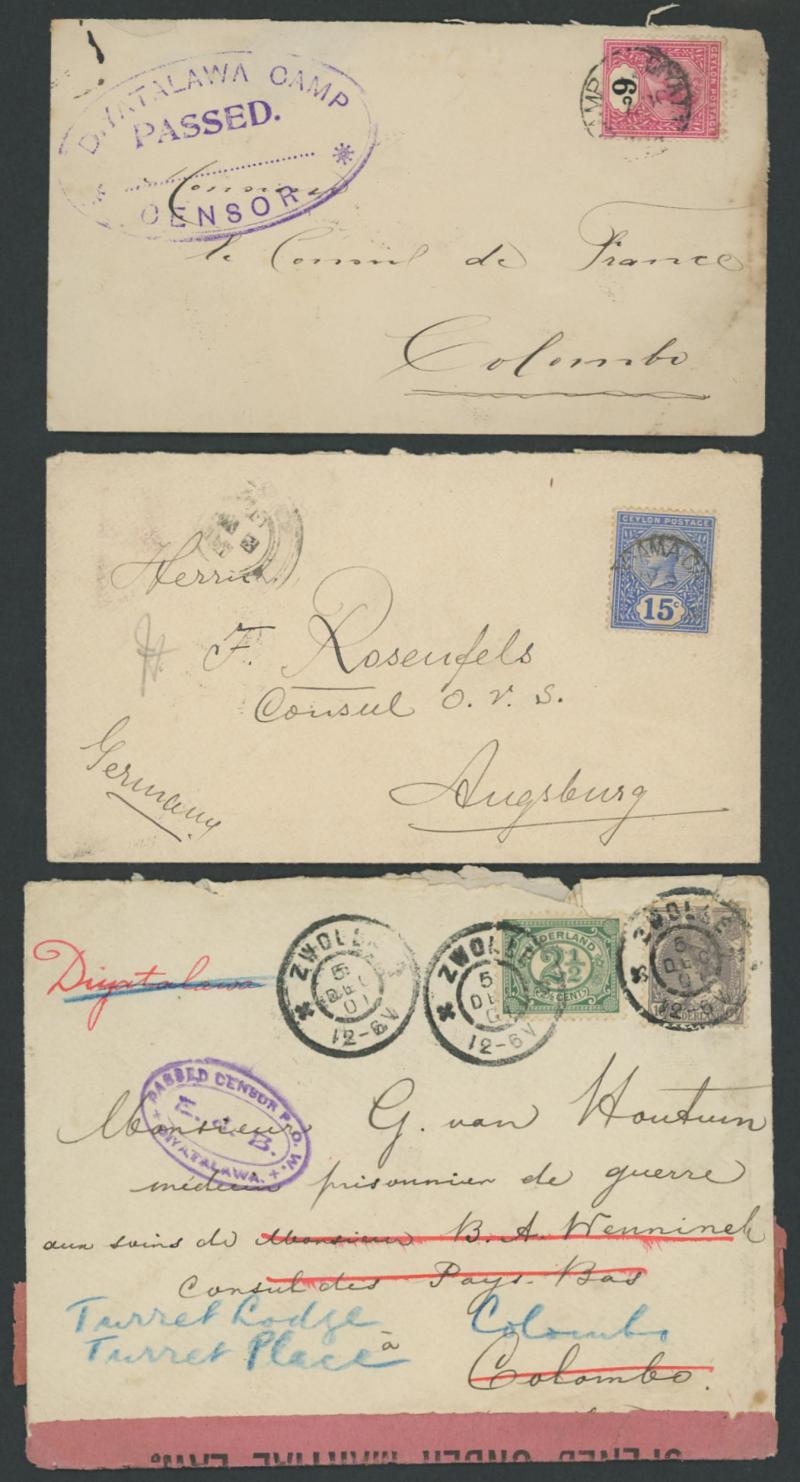 DIYATALAWA CAMP
PASSED.
CENSOR
CEYLON POSTAGE
6c
Monsieur
le Consul de France
Colombo
CEYLON POSTAGE
15c
Herrn
F. Rosenfels
Consul O. V. S.
Augsburg
Germany
Diyatalawa
ZWOLLE
5
DEC
01
12-6V
ZWOLLE
5
12-6V
NEDERLAND
2½
ZWOLLE
5
DEC
01
12-6V
PASSED CENSOR P.O.W.
E. J. B.
DIYATALAWA.
Monsieur G. van Houtum
médecin prisonnier de guerre
aux soins de Monsieur B. A. Wenninck
Consul des Pays-Bas
Turret Lodge Colombo
Turret Place
à Colombo.
OPENED UNDER MARTIAL LAW.